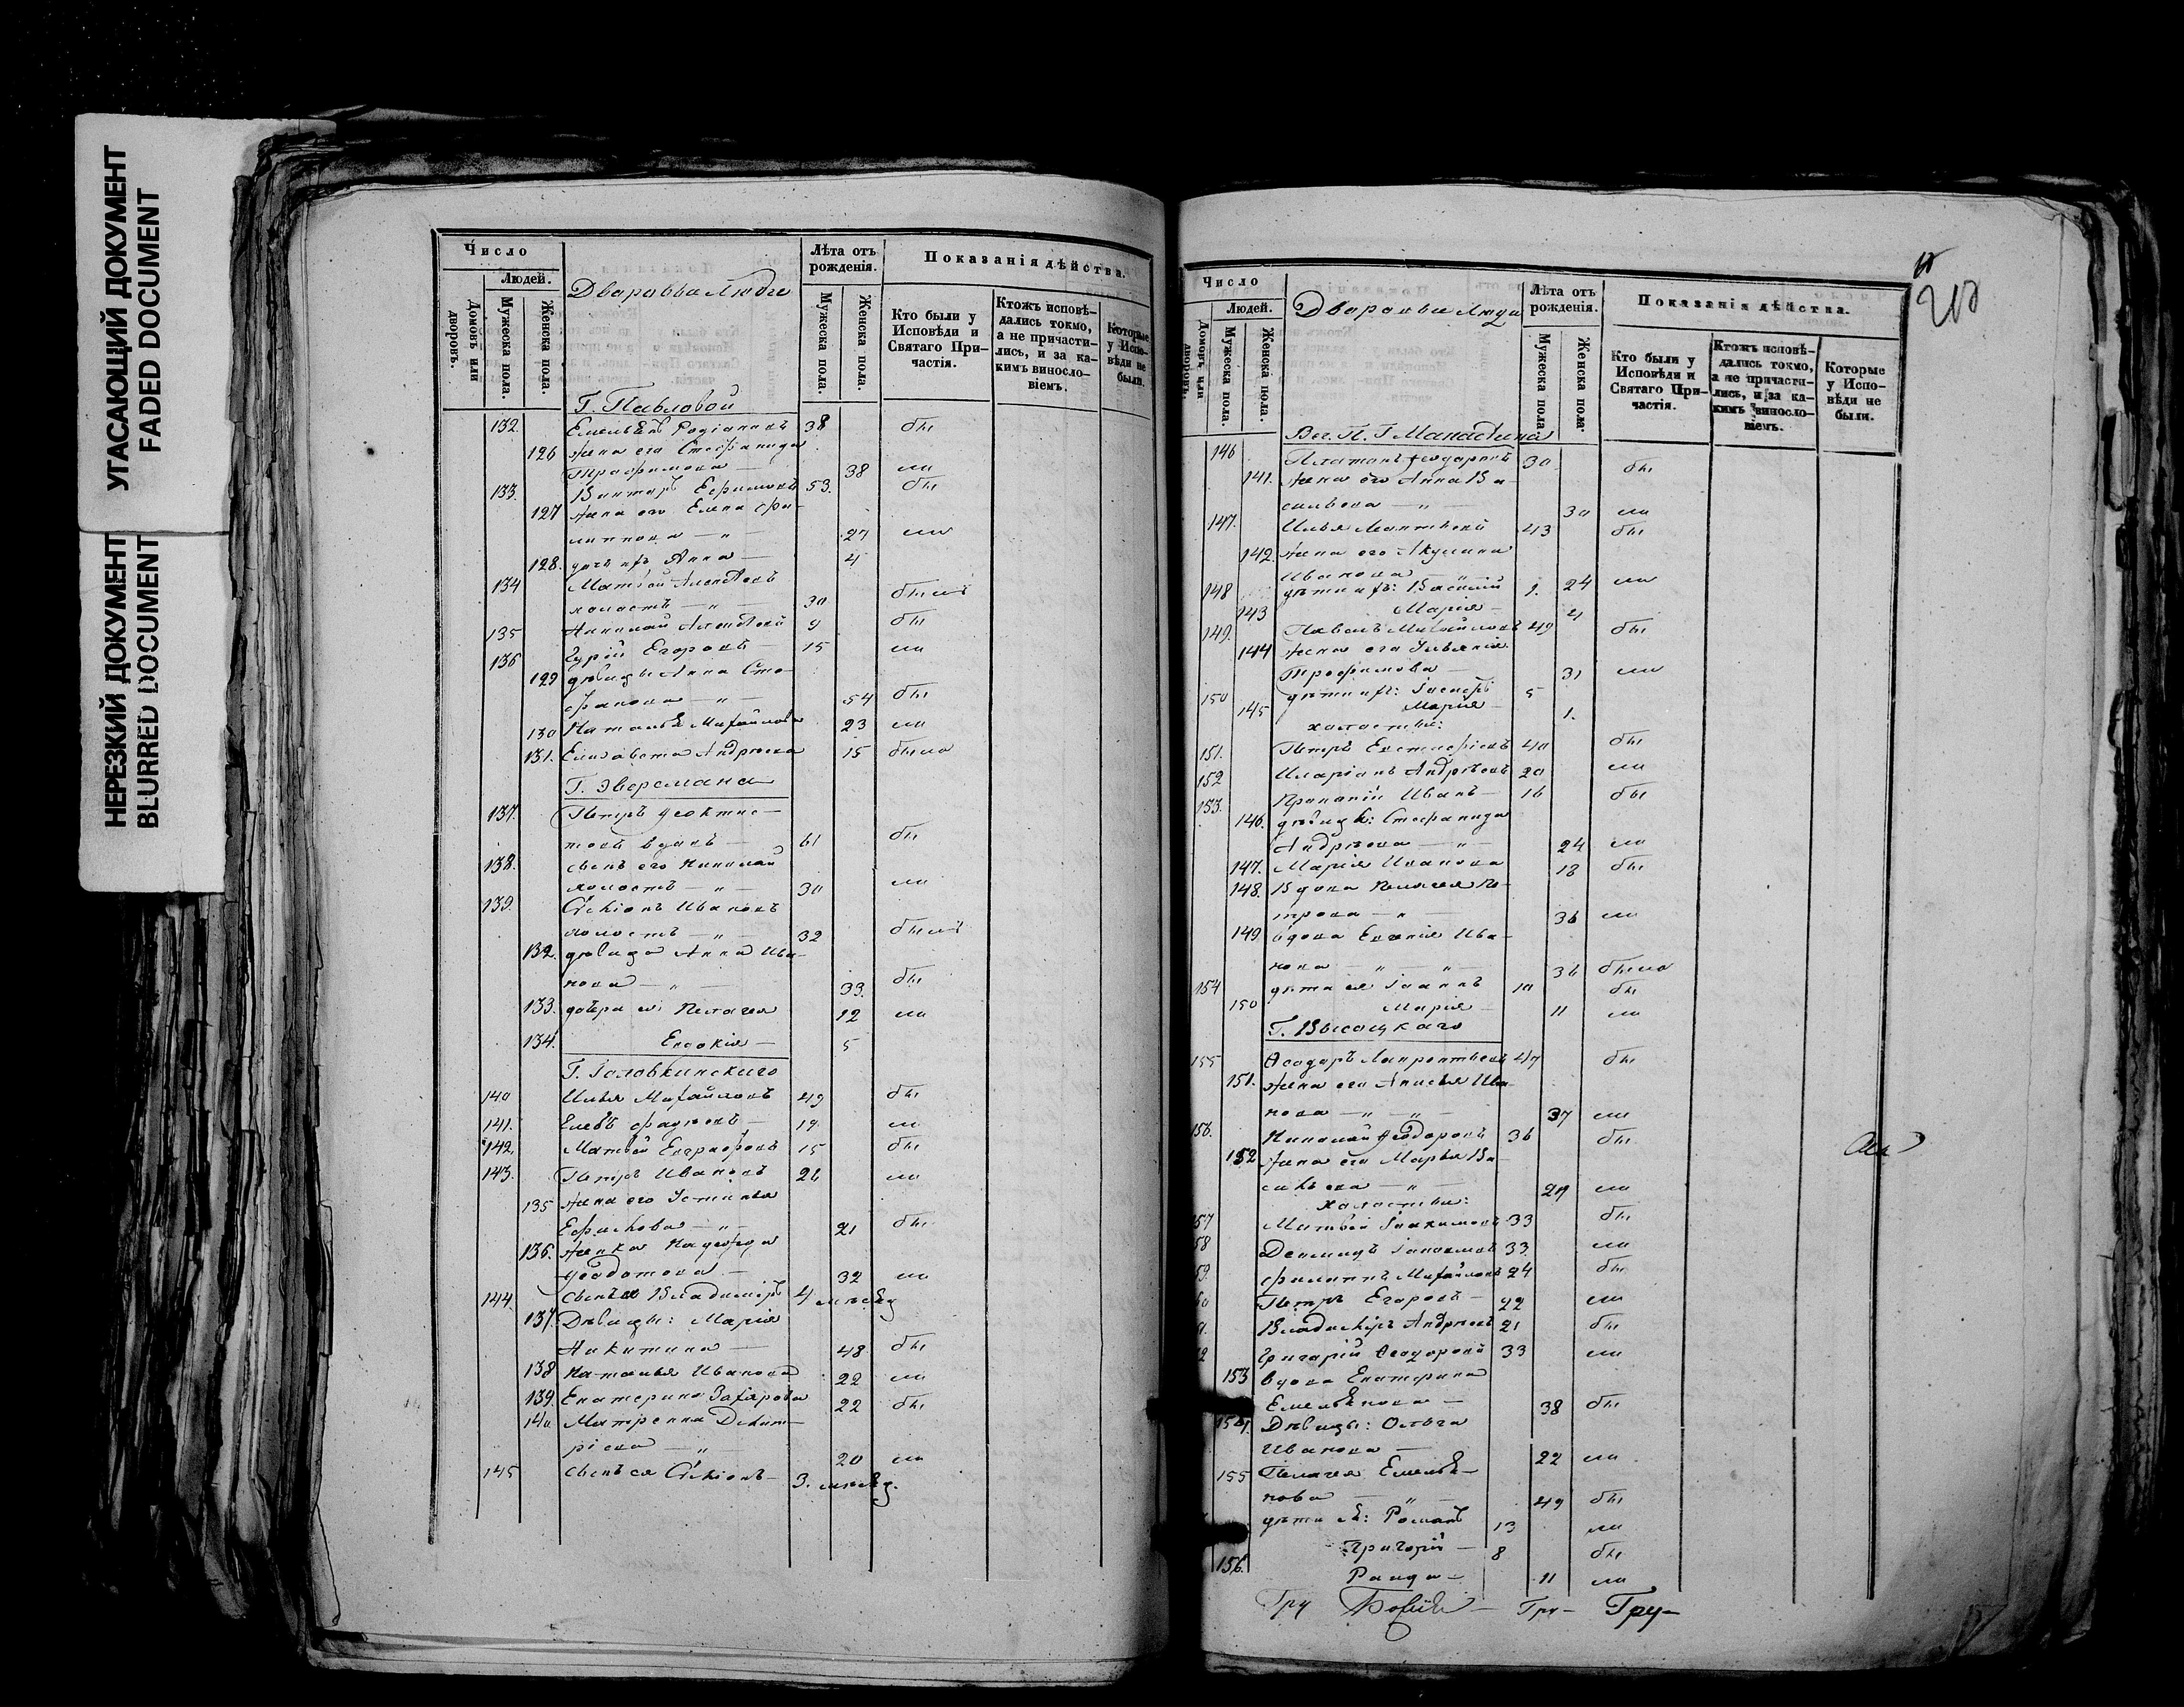 УГАСАЮЩИЙ ДОКУМЕНТ
FADED DOCUMENT
НЕРЕЗКИЙ ДОКУМЕНТ
BLURRED DOCUMENT
Число
Людей.
Домовъ или дворовъ.
Мужеска пола.
Женска пола.
Лѣта отъ рожденія.
Мужеска пола.
Женска пола.
Показанія дѣйства.
Кто были у Исповѣди и Святаго Причастія.
Ктожъ исповѣдались токмо, а не причастились, и за какимъ винословіемъ.
Которые у Исповѣди не были.
Г. Павловой
132. Емельянъ Родіоновъ 38 бы
126 жена его Стефанида
Трофимова — 38 ли
133. Викторъ Ефимовъ 53. бы
127 жена его Елена Фи-
липпова — „ — 27 ли
128. дочь ихъ Анна — 4
134 Матвѣй Алексѣевъ
холостъ — „ — 30
135 Николай Алексѣевъ 9 бы
136 Гурій Егоровъ — 15 ли
129 дѣвицы Анна Сте-
фанова — „ — 54 бы
130 Наталья Михайлова 23 ли
131. Елизавета Андреева 15 была
Г. Эверсмана
137. Петръ Феоктис-
товъ вдовъ — 61 бы
138. сынъ его Николай
холостъ — „ — 30 ли
139. Симіонъ Ивановъ
холостъ — „ — 32
132. дѣвица Анна Ива-
нова — „ — 33. бы
133. дщери ея: Пелагея 12 ли
134. Евдокія — 5
Г. Головкинскаго
140 Илья Михайловъ 49 бы
141. Глебъ Фадѣевъ — 19. ли
142. Матвѣй Евграфовъ 15 бы
143. Петръ Ивановъ 26 ли
135 жена его Устинья
Ефимова — „ — 21 бы
136. женка Надежда
Феодотова — 32 ли
144. сынъ ея Владиміръ 4 мѣсяц
137. Дѣвицы: Марія
Никитина — 48 бы
138 Наталья Иванова 22 ли
139. Екатерина Захарова 22 бы
140 Матрена Димит-
ріева — „ — 20 ли
145 сынъ ея Симіонъ — 3. мѣсяц.
Число
Людей.
Домовъ или дворовъ.
Мужеска пола.
Женска пола.
Лѣта отъ рожденія.
Мужеска пола
Женска пола.
Показанія дѣйства.
Кто были у Исповѣди и Святаго Причастія.
Ктожъ исповѣдались токмо, а не причастились, и за какимъ винословіемъ.
Которые у Исповѣди не были.
146 Платонъ Феодоровъ 30 бы
141. жена его Анна Ва-
сильева — „ — 30 ли
147. Илья Матвѣевъ 43 бы
142. жена его Акулина
Иванова — „ — 24 ли
148 дѣти ихъ: Василій 1.
143 Марія — 4
149. Павелъ Михайловъ 49 бы
144 жена его Ульянія
Трофимова — 31 ли
150 дѣти ихъ: Іосифъ 5
145 Марія — 1.
холостые:
151. Петръ Евстафіевъ 40 бы
152 Иларіонъ Андреевъ 20 ли
153. Прокопій Ивановъ — 16 бы
146. дѣвицы: Стефанида
Андреева — „ — 24 ли
147. Марія Иванова 18 бы
148. Вдова Пелагея Пе-
трова — „ — 36 ли
149 вдова Евгенія Ива-
нова — „ — „ — 36 была
154 дѣти ея Іоаннъ 10 бы
150 Марія — 11 ли
Г. Высоцкаго
155 Ѳеодоръ Лаврентьевъ 47 бы
151. жена его Анисья Ива-
нова — „ — „ — 37 ли
156. Николай Феодоровъ 36 бы
152 жена его Марья Ва-
сильева — „ — 27 ли
холостые:
57 Матвѣй Іоакимовъ 33 бы
58 33. ли
59. Филиппъ Михайловъ 24 бы
60 Петръ Егоровъ — 22 ли
Владиміръ Андреевъ 21 бы
Григорій Ѳеодоровъ 33 ли
153 вдова Екатерина
Емельянова — 38 бы
154. Дѣвицы: Ольга
Иванова — 22 ли
155 Пелагея Емелья-
нова — „ — 49 бы
дѣти ея: Романъ 13 ли
Григорій — 8 бы
156. Раида — 11 ли